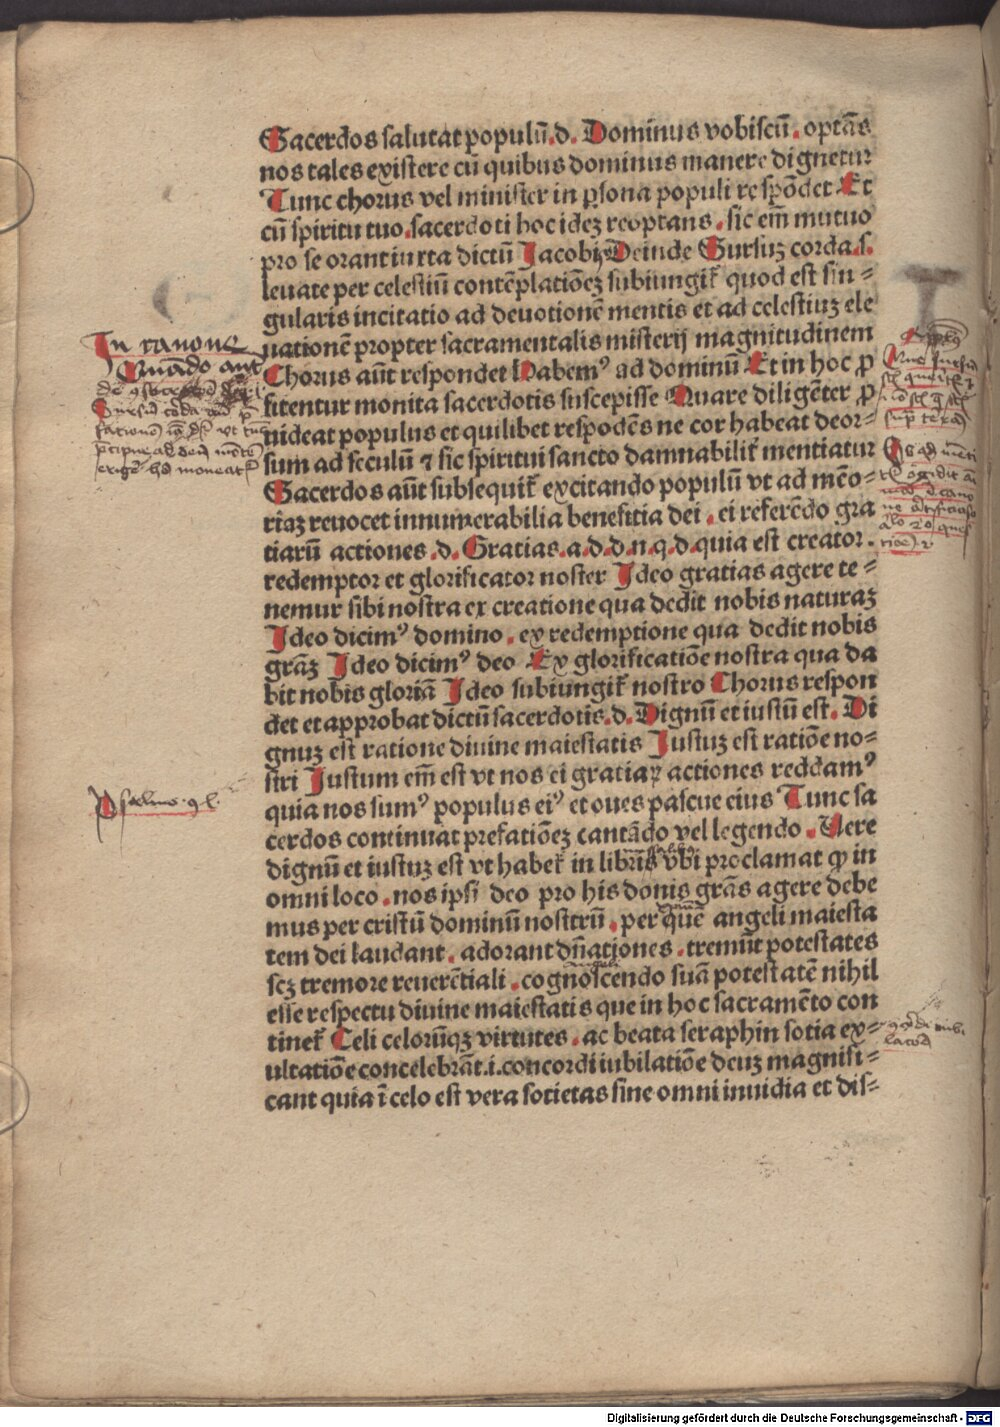 Sacerdos salutat populū.d. Dominus vobiscū. optās
nos tales existere cū quibus dominus manere dignetur
Tunc chorus vel minister in ꝑsona populi respōdet Et
cū spiritu tuo.sacerdoti hoc idez reoptans. sic em̄ mutuo
pro se orant iuxta dictū Jacobi Deinde Sursuz corda.s.
leuate per celestiū contēplatiōez subiungit̄ quod est sin⸗
gularis incitatio ad deuotionē mentis et ad celestiuz ele
uationē propter sacramentalis misterij magnitudinem
Chorus aūt respondet Habemꝰ ad dominū Et in hoc ꝓ
fitentur monita sacerdotis suscepisse Quare diligēter ꝓ
uideat populus et quilibet respodēs ne cor habeat deor⸗
sum ad seculū ⁊ sic spiritui sancto damnabilit̄ mentiatur
Sacerdos aūt subsequit̄ excitando populū vt ad mēo⸗
riaz reuocet innumerabilia benefitia dei. ei referēdo gra
tiarū actiones.d. Gratias.a.d.d.n.q.d.quia est creator.
redemptor et glorificator noster Ideo gratias agere te⸗
nemur sibi nostra ex creatione qua dedit nobis naturaz
Ideo dicimꝰ domino. ex redemptione qua dedit nobis
grāz Ideo dicimꝰ deo Ex glorificatiōe nostra qua da
bit nobis gloriā Ideo subiungit̄ nostro Chorus respon
det et approbat dictū sacerdotis.d. Dignū et iustū est. Di
gnuz est ratione diuine maiestatis Iustuz est ratiōe no⸗
stri Iustum em̄ est vt nos ei gratiaꝝ actiones reddamꝰ
quia nos sumꝰ populus eiꝰ et oues pascue eius Tunc sa
cerdos continuat prefatiōez cantādo vel legendo. Vere
dignū et iustuz est vt habet̄ in libris vbi proclamat ꝙ in
omni loco. nos ipsi deo pro his donis grās agere debe
mus per cristū dominū nosttrū. per quē angeli maiesta
tem dei laudant. adorant dn̄ationes. tremūt potestates
sez tremore reuerētiali. cognoscendo suā potestatē nihil
esse respectu diuine maiestatis que in hoc sacramēto con
tinet̄ Celi celorūqz virtutes. ac beata seraphin sotia ex⸗
ultatiōe concelebrāt.i.concordi iubilatiōe deuz magnifi⸗
cant quia ī celo est vera societas sine omni inuidia et dis⸗
In canone
Quādo aut
Psalmo
Digitalisierung gefördert durch die Deutsche Forschungsgemeinschaft - DFG